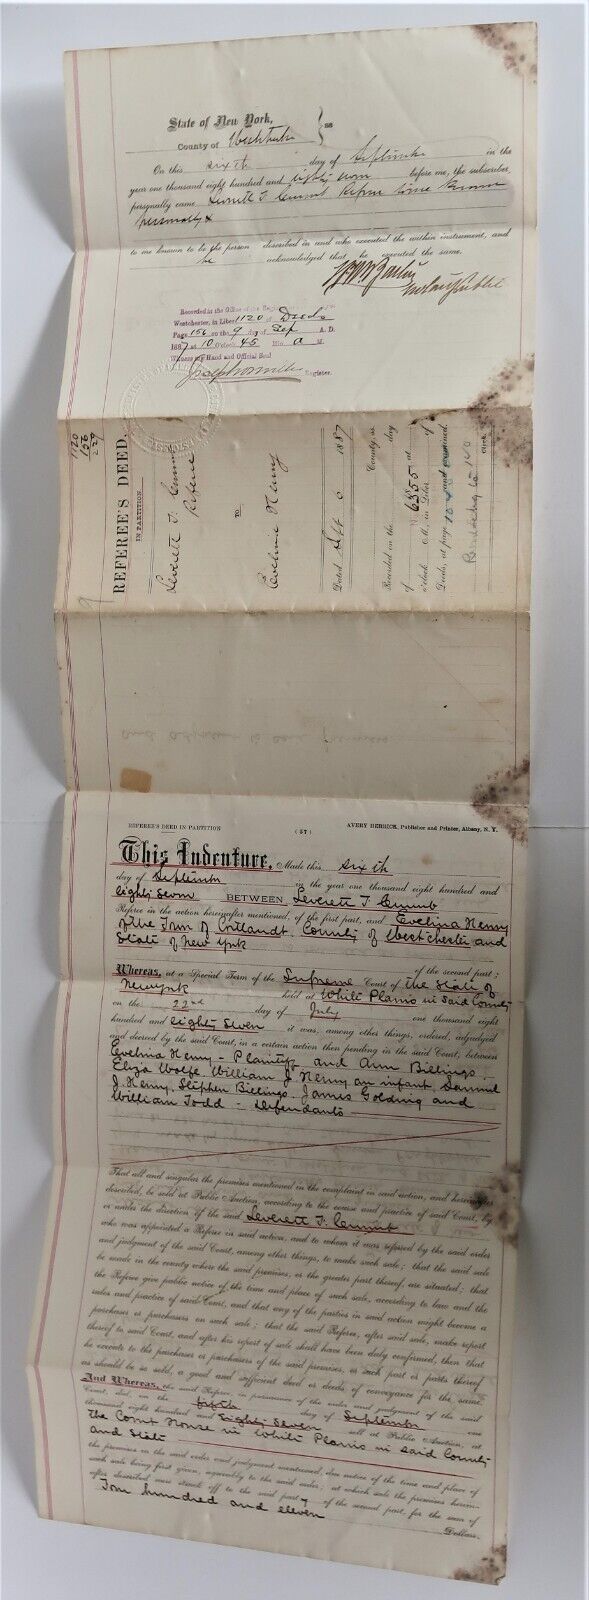 State of New York,
County of Westchester } ss
On this sixth day of September in the
year one thousand eight hundred and eighty seven before me, the subscriber,
personally came Leverett F. Crumb Referee to me known
personally &
to me known to be the person described in and who executed the within instrument, and
he acknowledged that he executed the same.
Notary Public
Recorded in the Office of the Register
Westchester, in Liber 1120 of Deeds
Page 156 on the 9 day of Sep A. D.
1887 at 10 O'clock 45 Min A M.
Witness my Hand and Official Seal
Register.
1120
156
229
REFEREE'S DEED.
IN PARTITION.
Leverett F. Crumb
Referee
TO
Evelina Henny
Dated Sept 6 1887
County, ss.
Recorded in the day
of at
o'clock M., in Liber of
Deeds, at page and examined.
Clerk.
REFEREE'S DEED IN PARTITION
(57)
AVERY HERRICK, Publisher and Printer, Albany, N. Y.
This Indenture, Made this sixth
day of September in the year one thousand eight hundred and
eighty seven BETWEEN Leverett F. Crumb
Referee in the action hereinafter mentioned, of the first part, and Evelina Henny
of the Town of Cortlandt. County of Westchester and
State of New York
of the second part;
Whereas, at a Special Term of the Supreme Court of the State of
New York held at White Plains in said County
on the 22nd day of July one thousand eight
hundred and eighty seven it was, among other things, ordered, adjudged
and decreed by the said Court, in a certain action then pending in the said Court, between
Evelina Henny - Plaintiff and Ann Billings
Eliza Wolfe. William J. Henny an infant Samuel
J. Henny. Stephen Billings. James Golding and
William Todd - Defendants
That all and singular the premises mentioned in the complaint in said action, and hereinafter
described, be sold at Public Auction, according to the course and practice of said Court, by
or under the direction of the said Leverett F. Crumb
who was appointed a Referee in said action, and to whom it was referred by the said order
and judgment of the said Court, among other things, to make such sale; that the said sale
be made in the county where the said premises, or the greater part thereof, are situated; that
the Referee give public notice of the time and place of such sale, according to law and the
rules and practice of said Court, and that any of the parties in said action might become a
purchaser or purchasers on such sale; that the said Referee, after said sale, make report
thereof to said Court, and after his report of sale shall have been duly confirmed, then that
he execute to the purchaser or purchasers of the said premises, or such part or parts thereof
as should be so sold, a good and sufficient deed or deeds of conveyance for the same
And Whereas, the said Referee, in pursuance of the order and judgment of the said
Court, did, on the fifth day of September one
thousand eight hundred and Eighty Seven sell at Public Auction, at
the Court House in White Plains in said County
and State
the premises in the said order and judgment mentioned, due notice of the time and place of
such sale being first given, agreeably to the said order; at which sale the premises herein-
after described were struck off to the said party of the second part, for the sum of
Four hundred and eleven
Dollars.